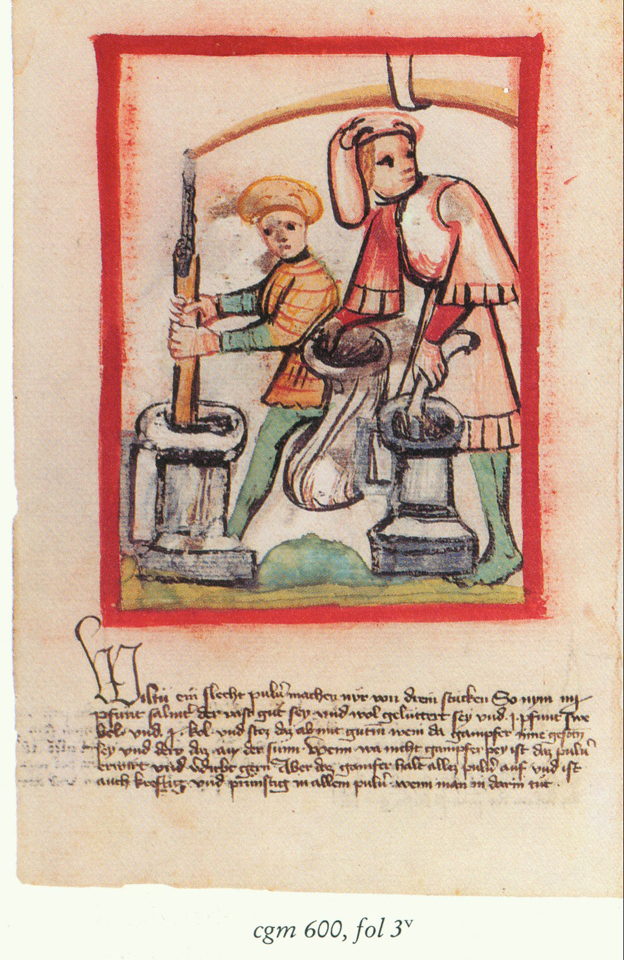 Wiltu ein slecht pulu̅ machen nür von drein stucken So nym iiij
pfunt salniter der vast gut sey vnd wol geluttert sey vnd .j. pfunt swe
bel vnd .j. kol vnd stoz daz ab mit gutem wein da gampfer jnne
sey vnd derr daz an der sunn wenn wa nicht gampfer pey ist daz pulu̅
vnd gern Aber der gamfer halt allez pulu̅ auf vnd ist
auch kreftig vnd prünstig in allem pulu̅ wenn man in darin tüt .
cgm 600, fol 3v